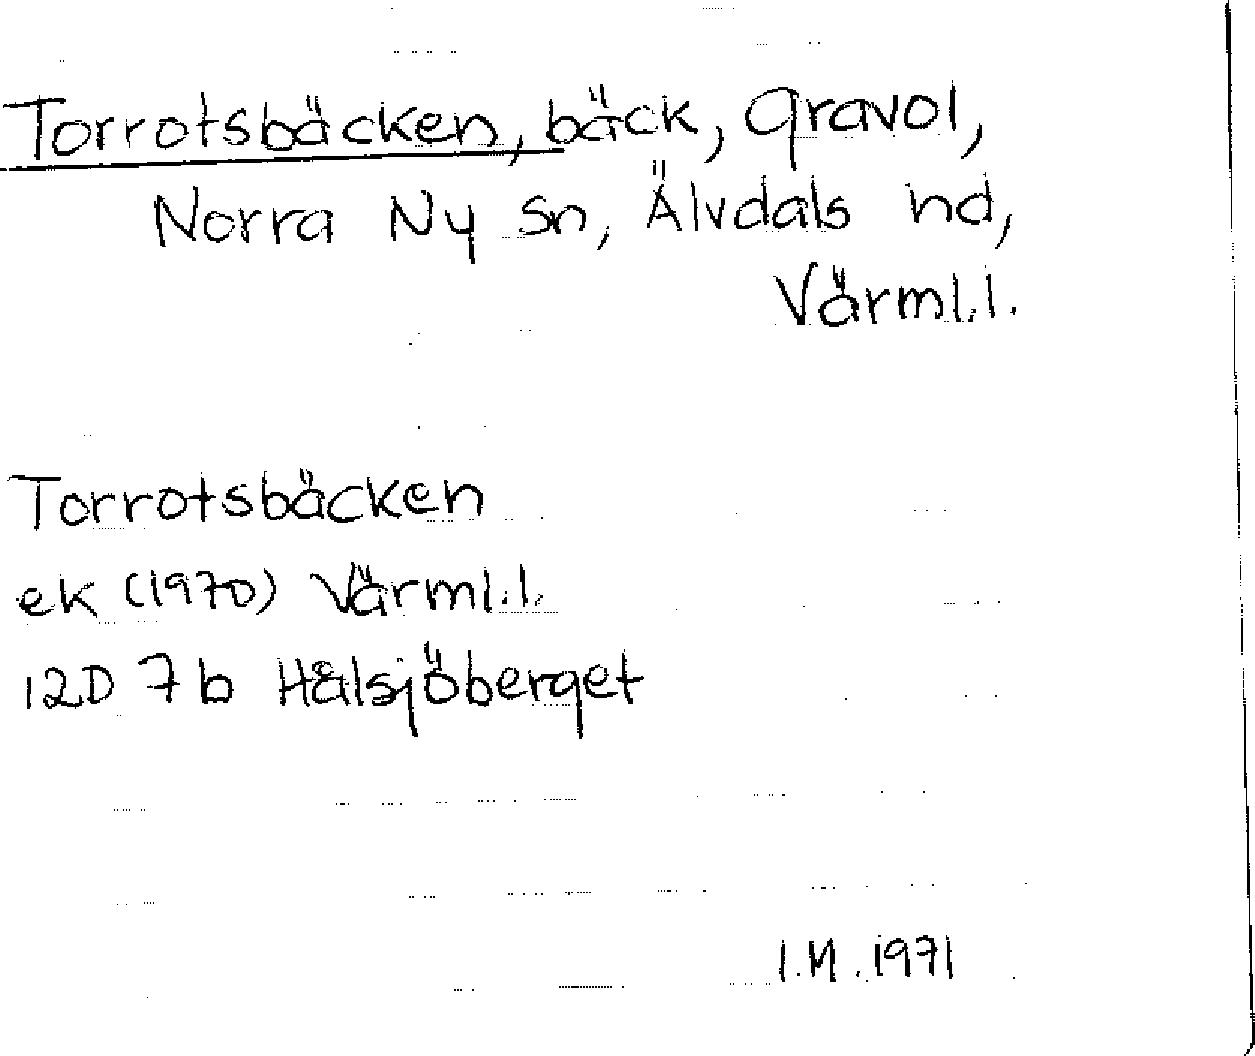 Torrotsbäcken, bäck, gravol,
Norra Ny sn, Älvdals hd,
Värml.l.
Torrotsbäcken
ek (1970) Värml.l.
12D 7b Hålsjöberget
I.M.1971